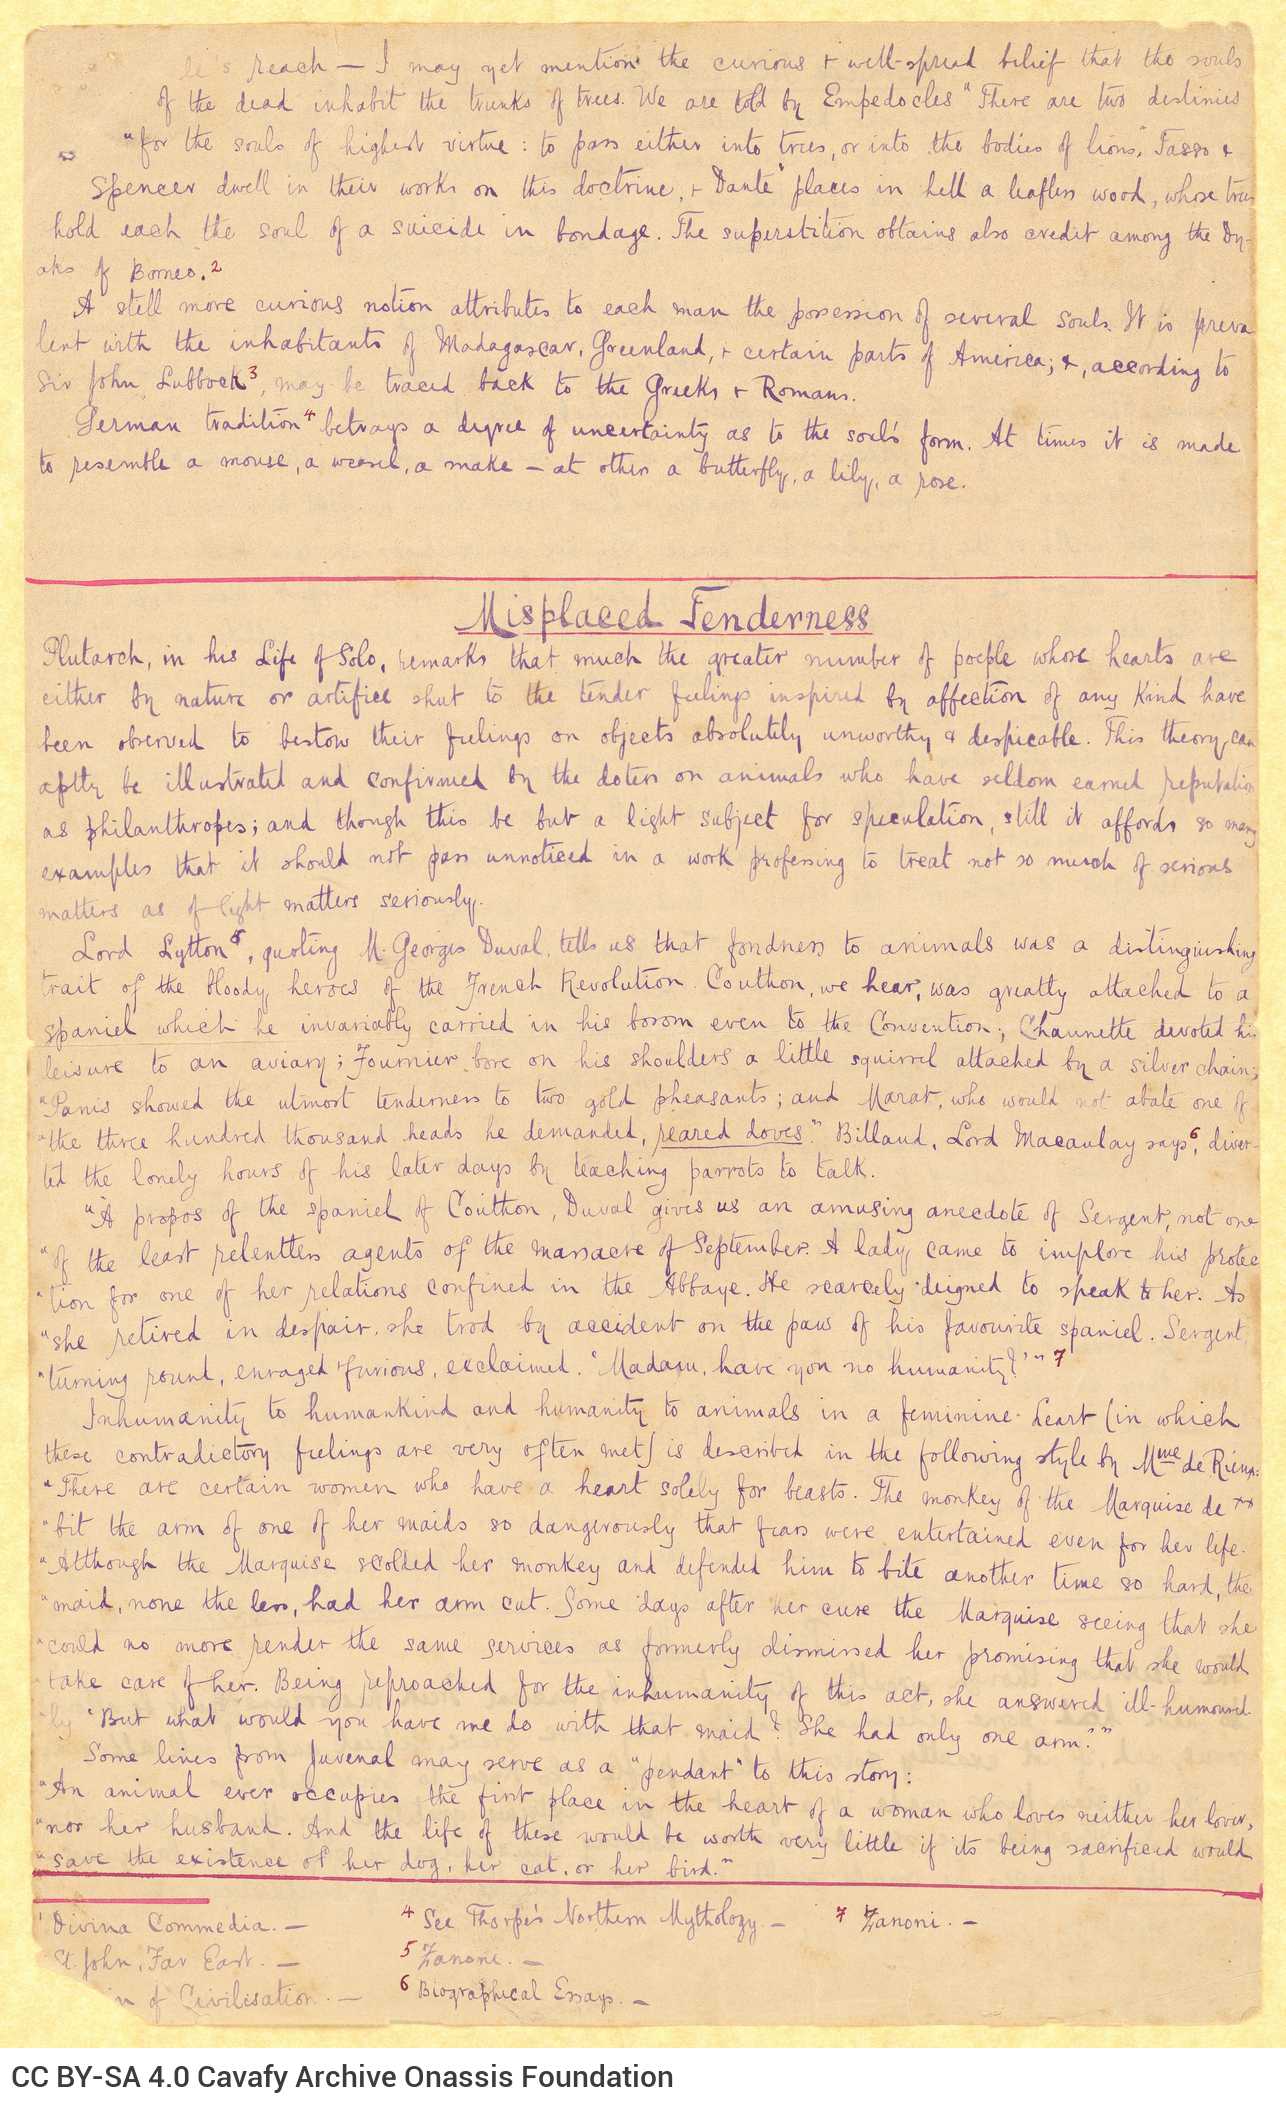 reach — I may yet mention the curious & well-spread belief that the souls
of the dead inhabit the trunks of trees. We are told by Empedocles "There are two destinies
"for the souls of highest virtue: to pass either into trees, or into the bodies of lions." Tasso &
Spencer dwell in their works on this doctrine, & Dante¹ places in hell a leafless wood, whose trees
hold each the soul of a suicide in bondage. The superstition obtains also credit among the Dy-
aks of Borneo.²
A still more curious notion attributes to each man the possession of several souls. It is preva
lent with the inhabitants of Madagascar, Greenland, & certain parts of America; &, according to
Sir John Lubbock³, may be traced back to the Greeks & Romans.
German tradition⁴ betrays a degree of uncertainty as to the soul's form. At times it is made
to resemble a mouse, a weasel, a snake — at others a butterfly, a lily, a rose.
Misplaced Tenderness
Plutarch, in his Life of Solo, remarks that much the greater number of poeple whose hearts are
either by nature or artifice shut to the tender feelings inspired by affection of any kind have
been observed to bestow their feelings on objects absolutely unworthy & despicable. This theory can
aptly be illustrated and confirmed by the doters on animals who have seldom earned reputation
as philanthropes; and though this be but a light subject for speculation, still it affords so many
examples that it should not pass unnoticed in a work professing to treat not so much of serious
matters as of light matters seriously.
Lord Lytton⁵, quoting M. Georges Duval, tells us that fondness to animals was a distinguishing
trait of the bloody heroes of the French Revolution. Couthon, we hear, was greatly attached to a
spaniel which he invariably carried in his bosom even to the Convention; Chaunette devoted his
leisure to an aviary; Fournier bore on his shoulders a little squirrel attached by a silver chain;
"Panis showed the utmost tenderness to two gold pheasants; and Marat, who would not abate one of
"the three hundred thousand heads he demanded, reared doves." Billaud, Lord Macaulay says⁶, diver-
ted the lonely hours of his later days by teaching parrots to talk.
"À propos of the spaniel of Couthon, Duval gives us an amusing anecdote of Sergent, not one
"of the least relentless agents of the massacre of September. A lady came to implore his protec
"tion for one of her relations confined in the Abbaye. He scarcely deigned to speak to her. As
"she retired in despair, she trod by accident on the paw of his favourite spaniel. Sergent,
"turning round, enraged & furious, exclaimed. 'Madam, have you no humanity?'"⁷
Inhumanity to humankind and humanity to animals in a feminine heart (in which
these contradictory feelings are very often met) is described in the following style by Mme de Rieux:
"There are certain women who have a heart solely for beasts. The monkey of the Marquise de **
"bit the arm of one of her maids so dangerously that fears were entertained even for her life.
"Although the Marquise scolded her monkey and defended him to bite another time so hard, the
"maid, none the less, had her arm cut. Some days after her cure the Marquise seeing that she
"could no more render the same services as formerly dismissed her promising that she would
"take care of her. Being reproached for the inhumanity of this act, she answered ill-humoured-
"ly 'But what would you have me do with that maid? She had only one arm.'"
Some lines from Juvenal may serve as a "pendant" to this story:
"An animal ever occupies the first place in the heart of a woman who loves neither her lover,
"nor her husband. And the life of these would be worth very little if its being sacrificed would
"save the existence of her dog, her cat, or her bird."
¹ Divina Commedia. —
St. John, Far East. —
of Civilisation. —
⁴ See Thorpe's Northern Mythology —
⁵ Zanoni. —
⁶ Biographical Essays. —
⁷ Zanoni. —
CC BY-SA 4.0 Cavafy Archive Onassis Foundation